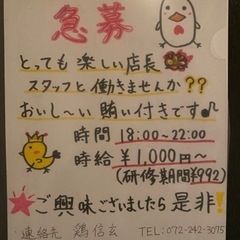 急募
とっても楽しい店長
スタッフと働きませんか??
おいし〜い賄い付きです♪
時間 18:00~22:00
時給 ¥1,000円~
(研修期間¥992)
★ご興味ございましたら是非!
連絡先 鶏信玄 TEL:072-242-3075